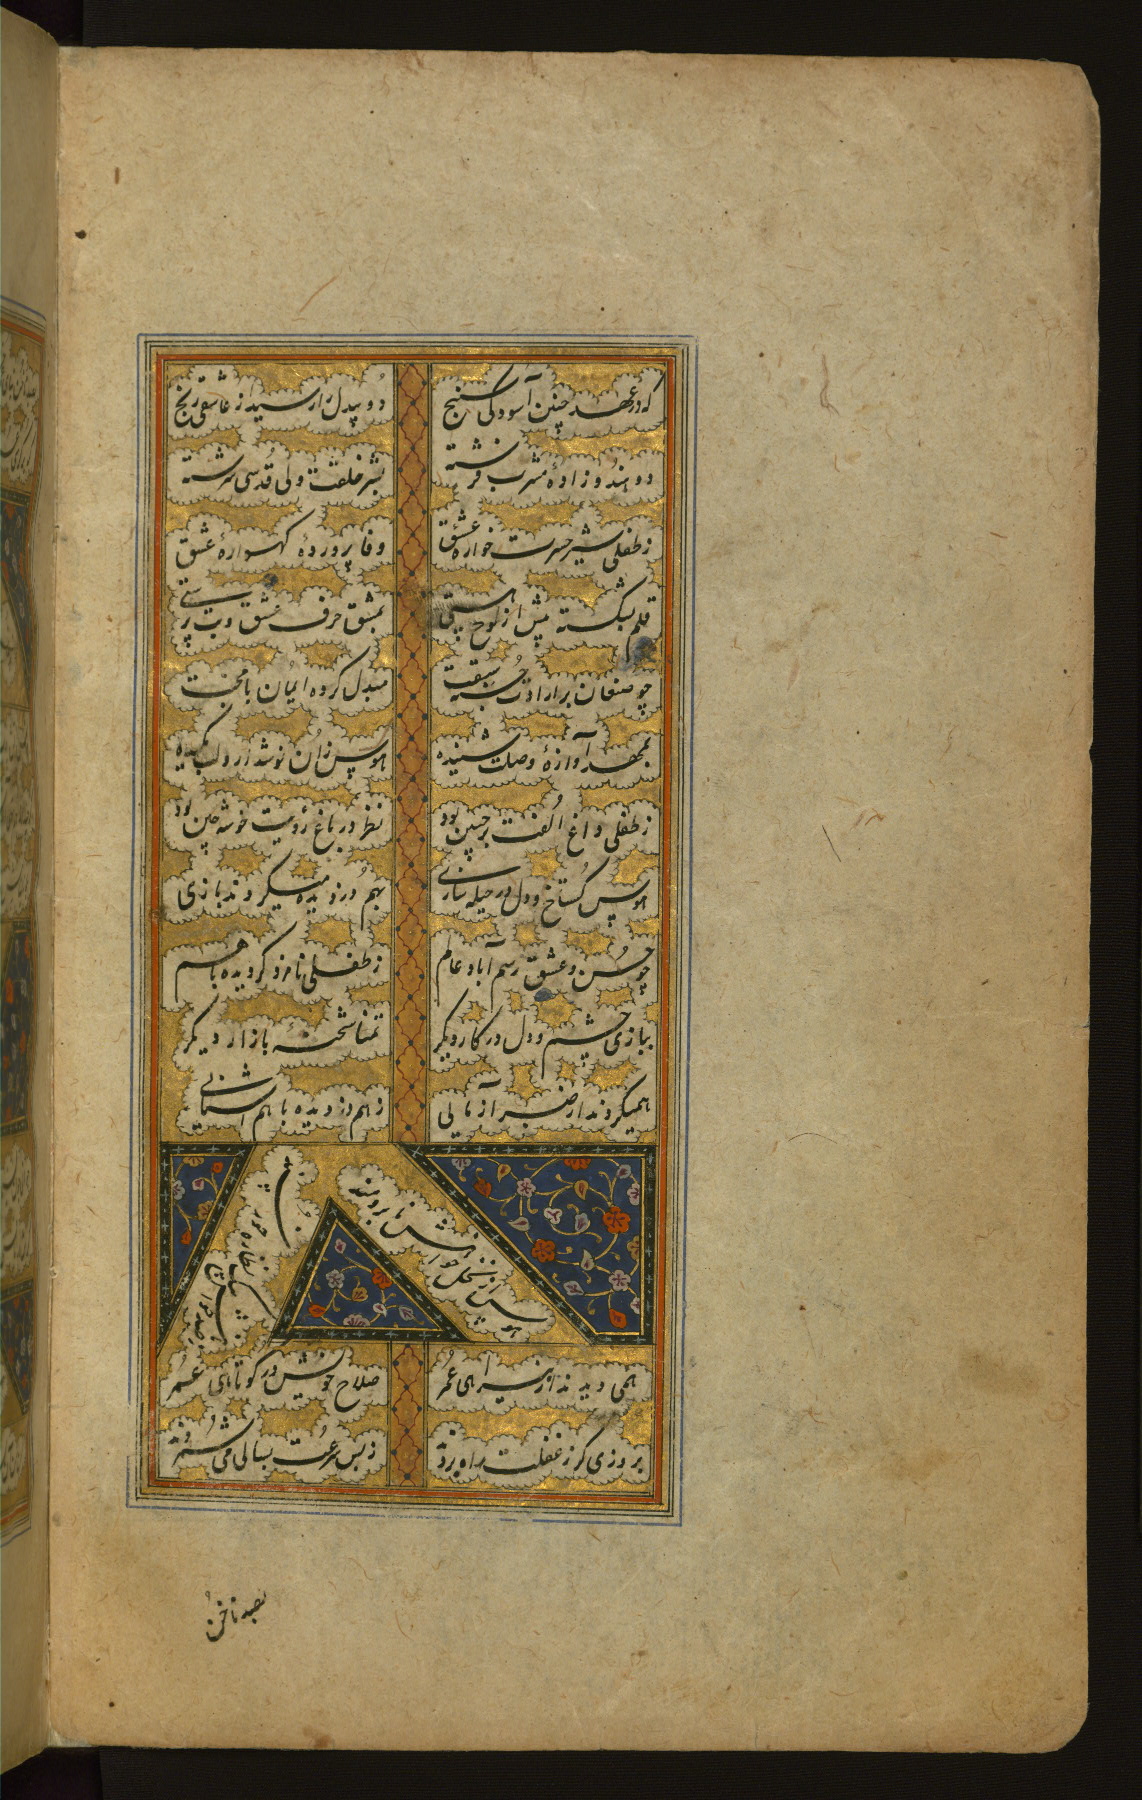 که در عهد چنین آسودگی سنج
دو بیدل را رسید از عاشقی رنج
دو هندو زادهٔ مشرب فرشته
بشر خلقت ولی قدسی سرشته
ز طفلی شیر حسرت خوارهٔ عشق
وفا پروردهٔ گهوارهٔ عشق
قلم بشکسته پیش از لوح هستی
بمشق حرف عشق و بت پرستی
چو صنعان بر ارادت جسته سبقت
مبدل کرده ایمان با محبت
بمهد آوازهٔ وصلت شنیده
هوس زان نوشدارو لب گزیده
ز طفلی داغ الفت بر جبین بود
نظر در باغ رؤیت خوشه چین بود
هوس گستاخ و دل در حیله سازی
بهم دزدیده میکردند بازی
چو حسن و عشق رسم آباد عالم
ز طفلی نامزد گردیده باهم
ببازی چشم و دل در کار دیگر
تمنا شحنهٔ بازار دیگر
همیکردند از صبر آزمایی
ز هم دزدیده باهم آشنایی
هوس از نخل خواهش نابرومند
نظاره
همی دیدند از نیرا هی عمر
صلاح خویش در کوتاهی عمر
بروزی کز غفلت راه بزد
ز بس سرعت بسالی می شمردند
بصد ناخن